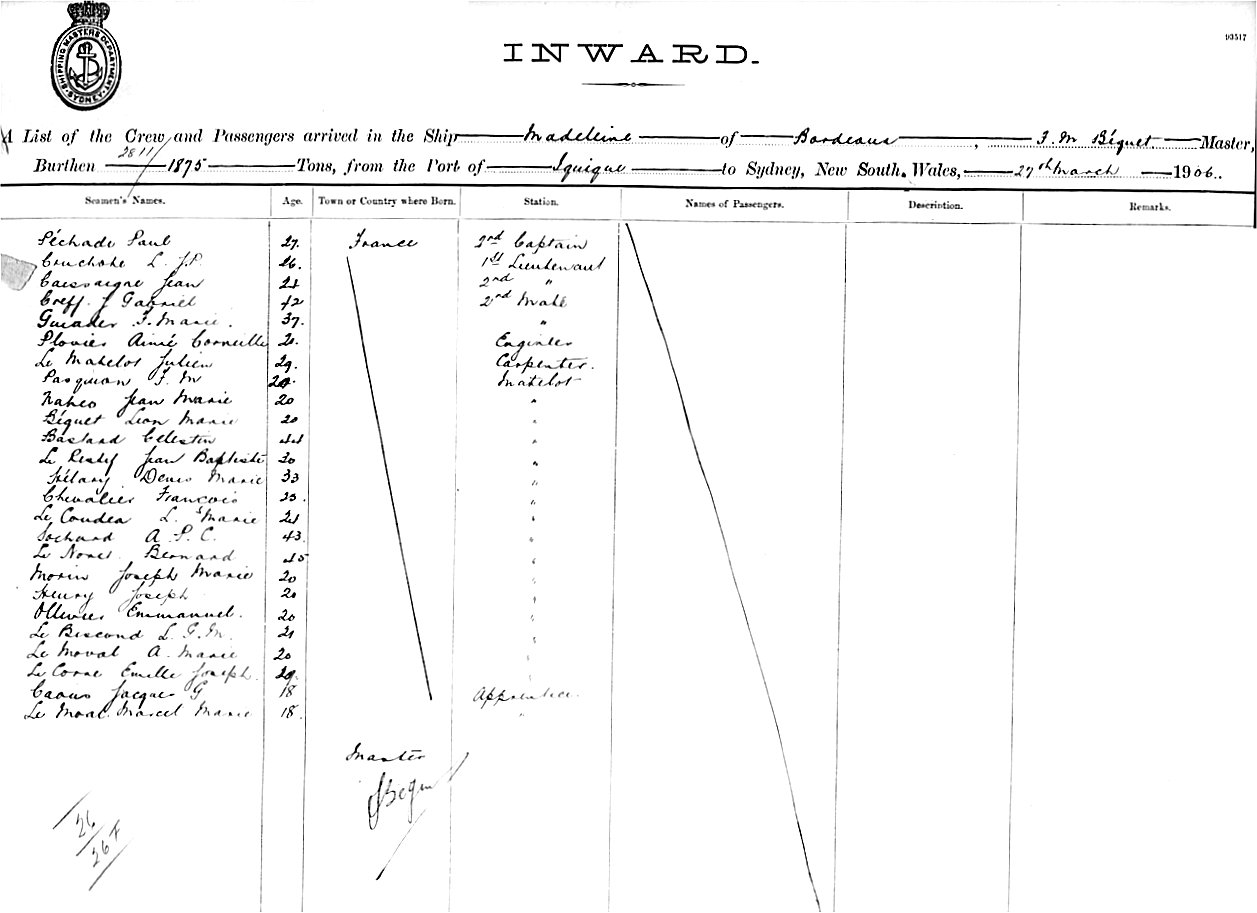 SHIPPING MASTERS DEPARTMENT SYDNEY
93517
INWARD.
A List of the Crew and Passengers arrived in the Ship Madeleine of Bordeaux, F. M Béquet Master,
Burthen 2811/1875 Tons, from the Port of Iquique to Sydney, New South Wales, 27th March 1906.
Seamen's Names. Age. Town or Country where Born. Station. Names of Passengers. Description. Remarks.
Péchade Paul 27. France 2nd Captain
L. J.P. 26. 1st Lieutenant
Cassaigne Jean 2nd "
Creff. J Gabriel 42 2nd Mate
Guiader F. Marie. 37. "
Plovier Aimé Corneille Engineer
Le Matelot Julien 29. Carpenter.
Pasquion F. M Matelot
Jean Marie 20 "
Béquet Leon Marie 20 "
Bastard Celestin 44 "
Le Jean Baptiste 30 "
Hélary Denis Marie 33 "
Chevalier François "
Le Coudea L. Marie "
Sochard A P. C. 43. "
Le Bernard 45 "
Morin Joseph Marie 20 "
Henry Joseph 20 "
Ollivier Emmanuel. 20 "
Le Biscond L. G. M. "
Le Moval A. Marie 20 "
Le Corre Emille Joseph. "
Caous Jacques G 18 Apprentice.
Le Moal Marcel Marie 18. "
Master
Bequet
26
26 F